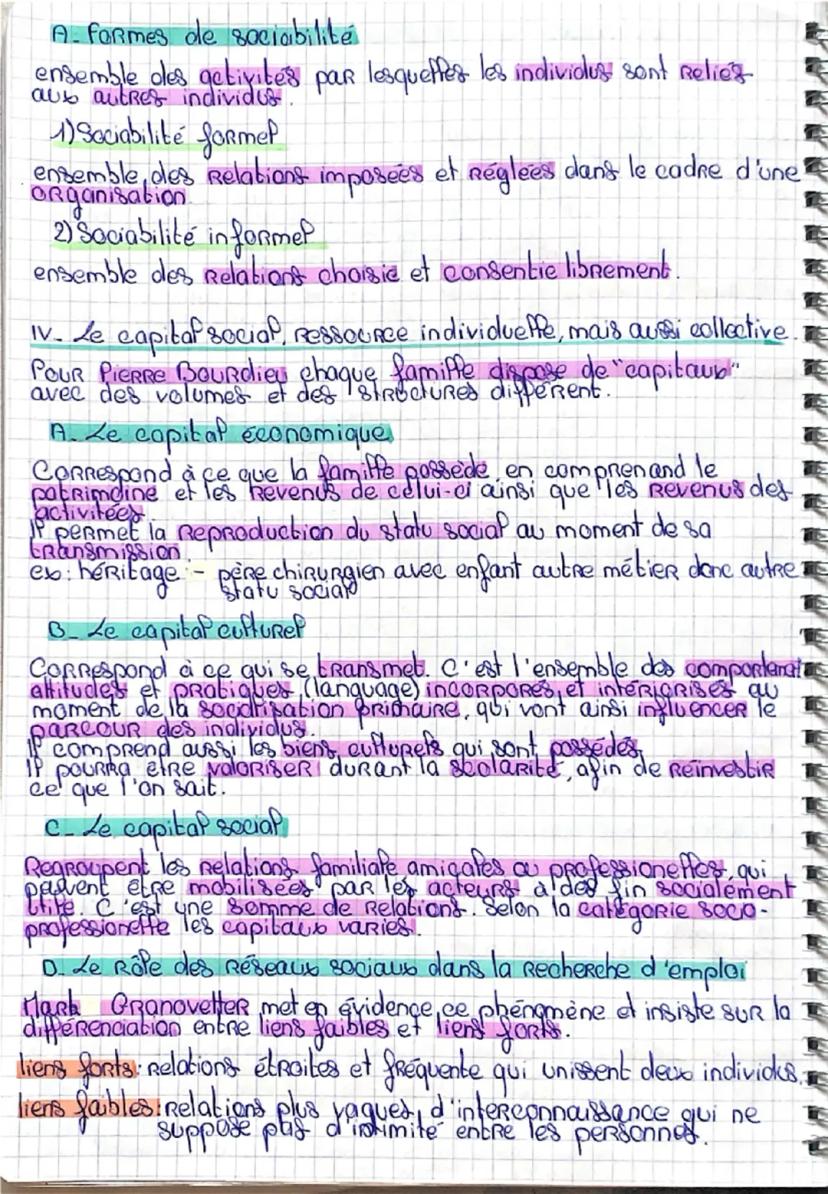 A- formes de sociabilité
ensemble des activités par lesquelles les individus sont reliés
aux autres individus.
1) Sociabilité formel
ensemble des relations imposées et réglées dans le cadre d'une
organisation
2) Sociabilité informel
ensemble des relations choisie et consentie librement.
IV- Le capital social, ressource individuelle, mais aussi collective.
Pour Pierre Bourdieu chaque famille dispose de "capitaux"
avec des volumes et des structures différent.
A- Le capital économique
Correspond à ce que la famille possède en comprenand le
patrimoine et les revenus de celui-ci ainsi que les revenus des
activitées
Il permet la reproduction du statu social au moment de sa
transmission
ex: héritage - père chirurgien avec enfant autre métier donc autre
statu social
B- Le capital culturel
Correspond à ce qui se transmet. C'est l'ensemble des comportemt
attitudes et pratiques (language) incorporés et intériorisés au
moment de la socialisation primaire, qui vont ainsi influencer le
parcour des individus.
Il comprend aussi les biens culturels qui sont possédés
Il pourra etre valoriser durant la scolarité, afin de réinvestir
ce que l'on sait.
C- Le capital social
Regroupent les relations familiale amicales ou professionelles, qui
peuvent etre mobilisées par les acteurs à des fin socialement
utile. C'est une somme de relations. Selon la catégorie socio-
professionelle les capitaux varies.
D- Le rôle des réseaux sociaux dans la recherche d'emploi
Mark Granovetter met en évidence ce phénomène et insiste sur la
différenciation entre liens faibles et liens forts.
liens forts: relations étroites et fréquente qui unissent deux individus.
liens faibles: relations plus vagues, d'interconnaissance qui ne
suppose pas d'intimité entre les personnes.